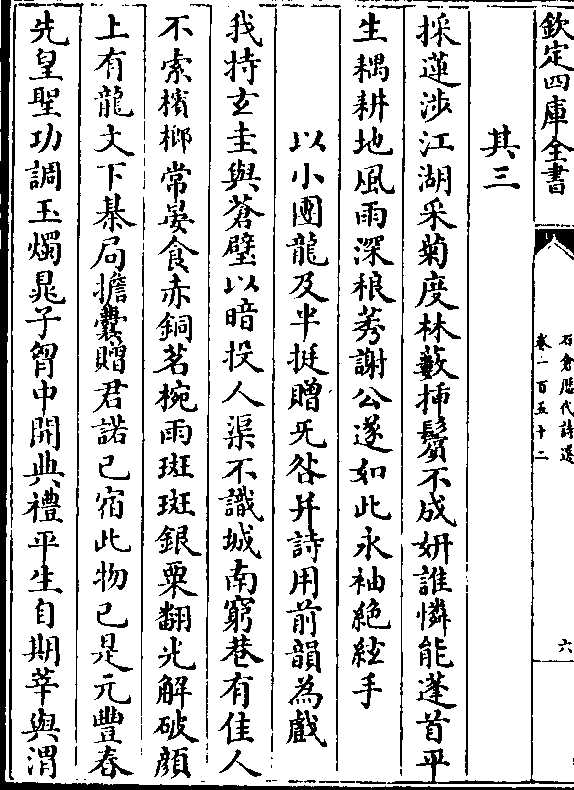 欽定四庫全書
石倉歴代詩選
卷一百五十二
六
其三
採蓮涉江湖采菊度林藪插鬢不成妍誰憐能蓬首平
生耦耕地風雨深稂莠謝公遂如此永袖絶絃手
以小團龍及半挺贈无咎并詩用前韻為戲
我持玄圭與蒼璧以暗投人渠不識城南窮巷有佳人
不索檳榔常晏食赤銅茗椀雨斑斑銀粟翻光解破顔
上有龍文下棊局擔囊贈君諾已宿此物已是元豐春
先皇聖功調玉燭晁子胷中開典禮平生自期莘與渭